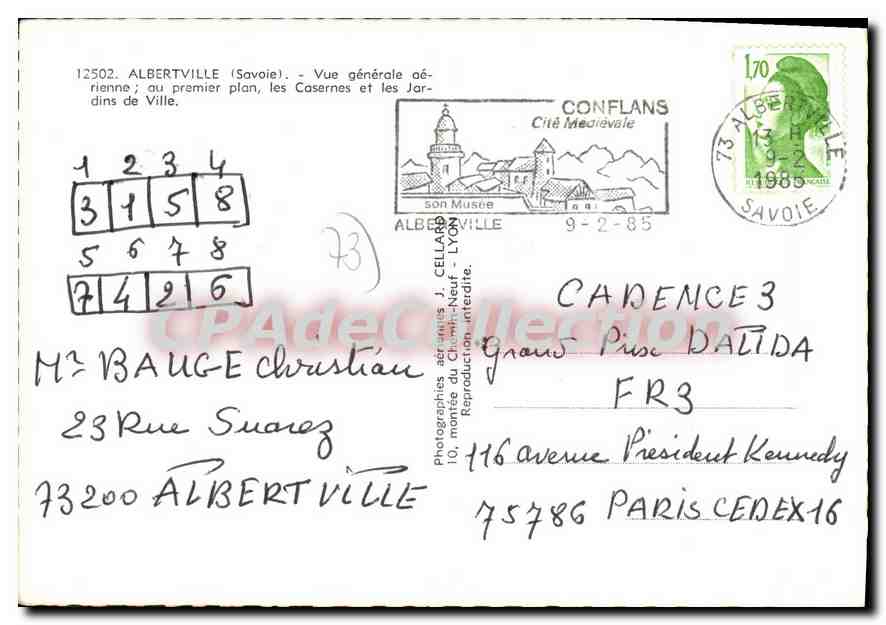 12502. ALBERTVILLE (Savoie). - Vue générale aé-
rienne ; au premier plan, les Casernes et les Jar-
dins de Ville.
CONFLANS
Cité Médiévale
son Musée
ALBERTVILLE 9-2-85
1,70
73 ALBERTVILLE
13 H
9-2
1985
SAVOIE
1 2 3 4
3 1 5 8
5 6 7 8
7 4 2 6
73
Mr BAUGE Christian
23 Rue Suarez
73200 ALBERTVILLE
Photographies aériennes J. CELLARD
10, montée du Chemin-Neuf - LYON
Reproduction interdite.
CADENCE 3
Grand Prix DALIDA
FR3
116 avenue Président Kennedy
75786 PARIS CEDEX 16
CPAdeCollection